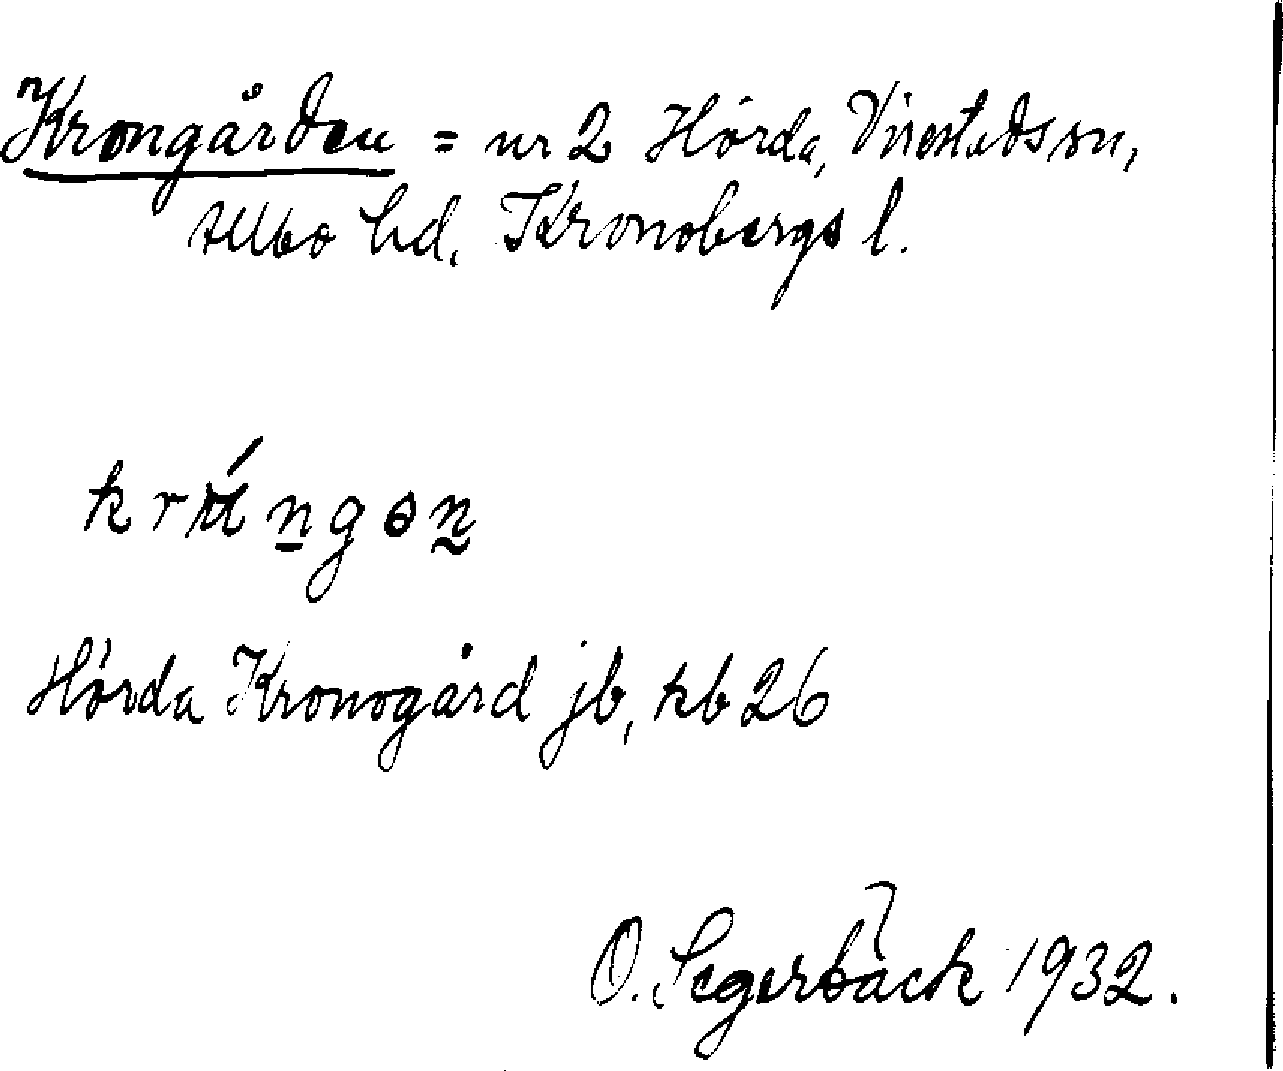 Krongården = nr 2 Hörda, Virestads sn,
Allbo hd, Kronobergs l.
Hörda Kronogård jb, kb 26
O. Segerbäck 1932.